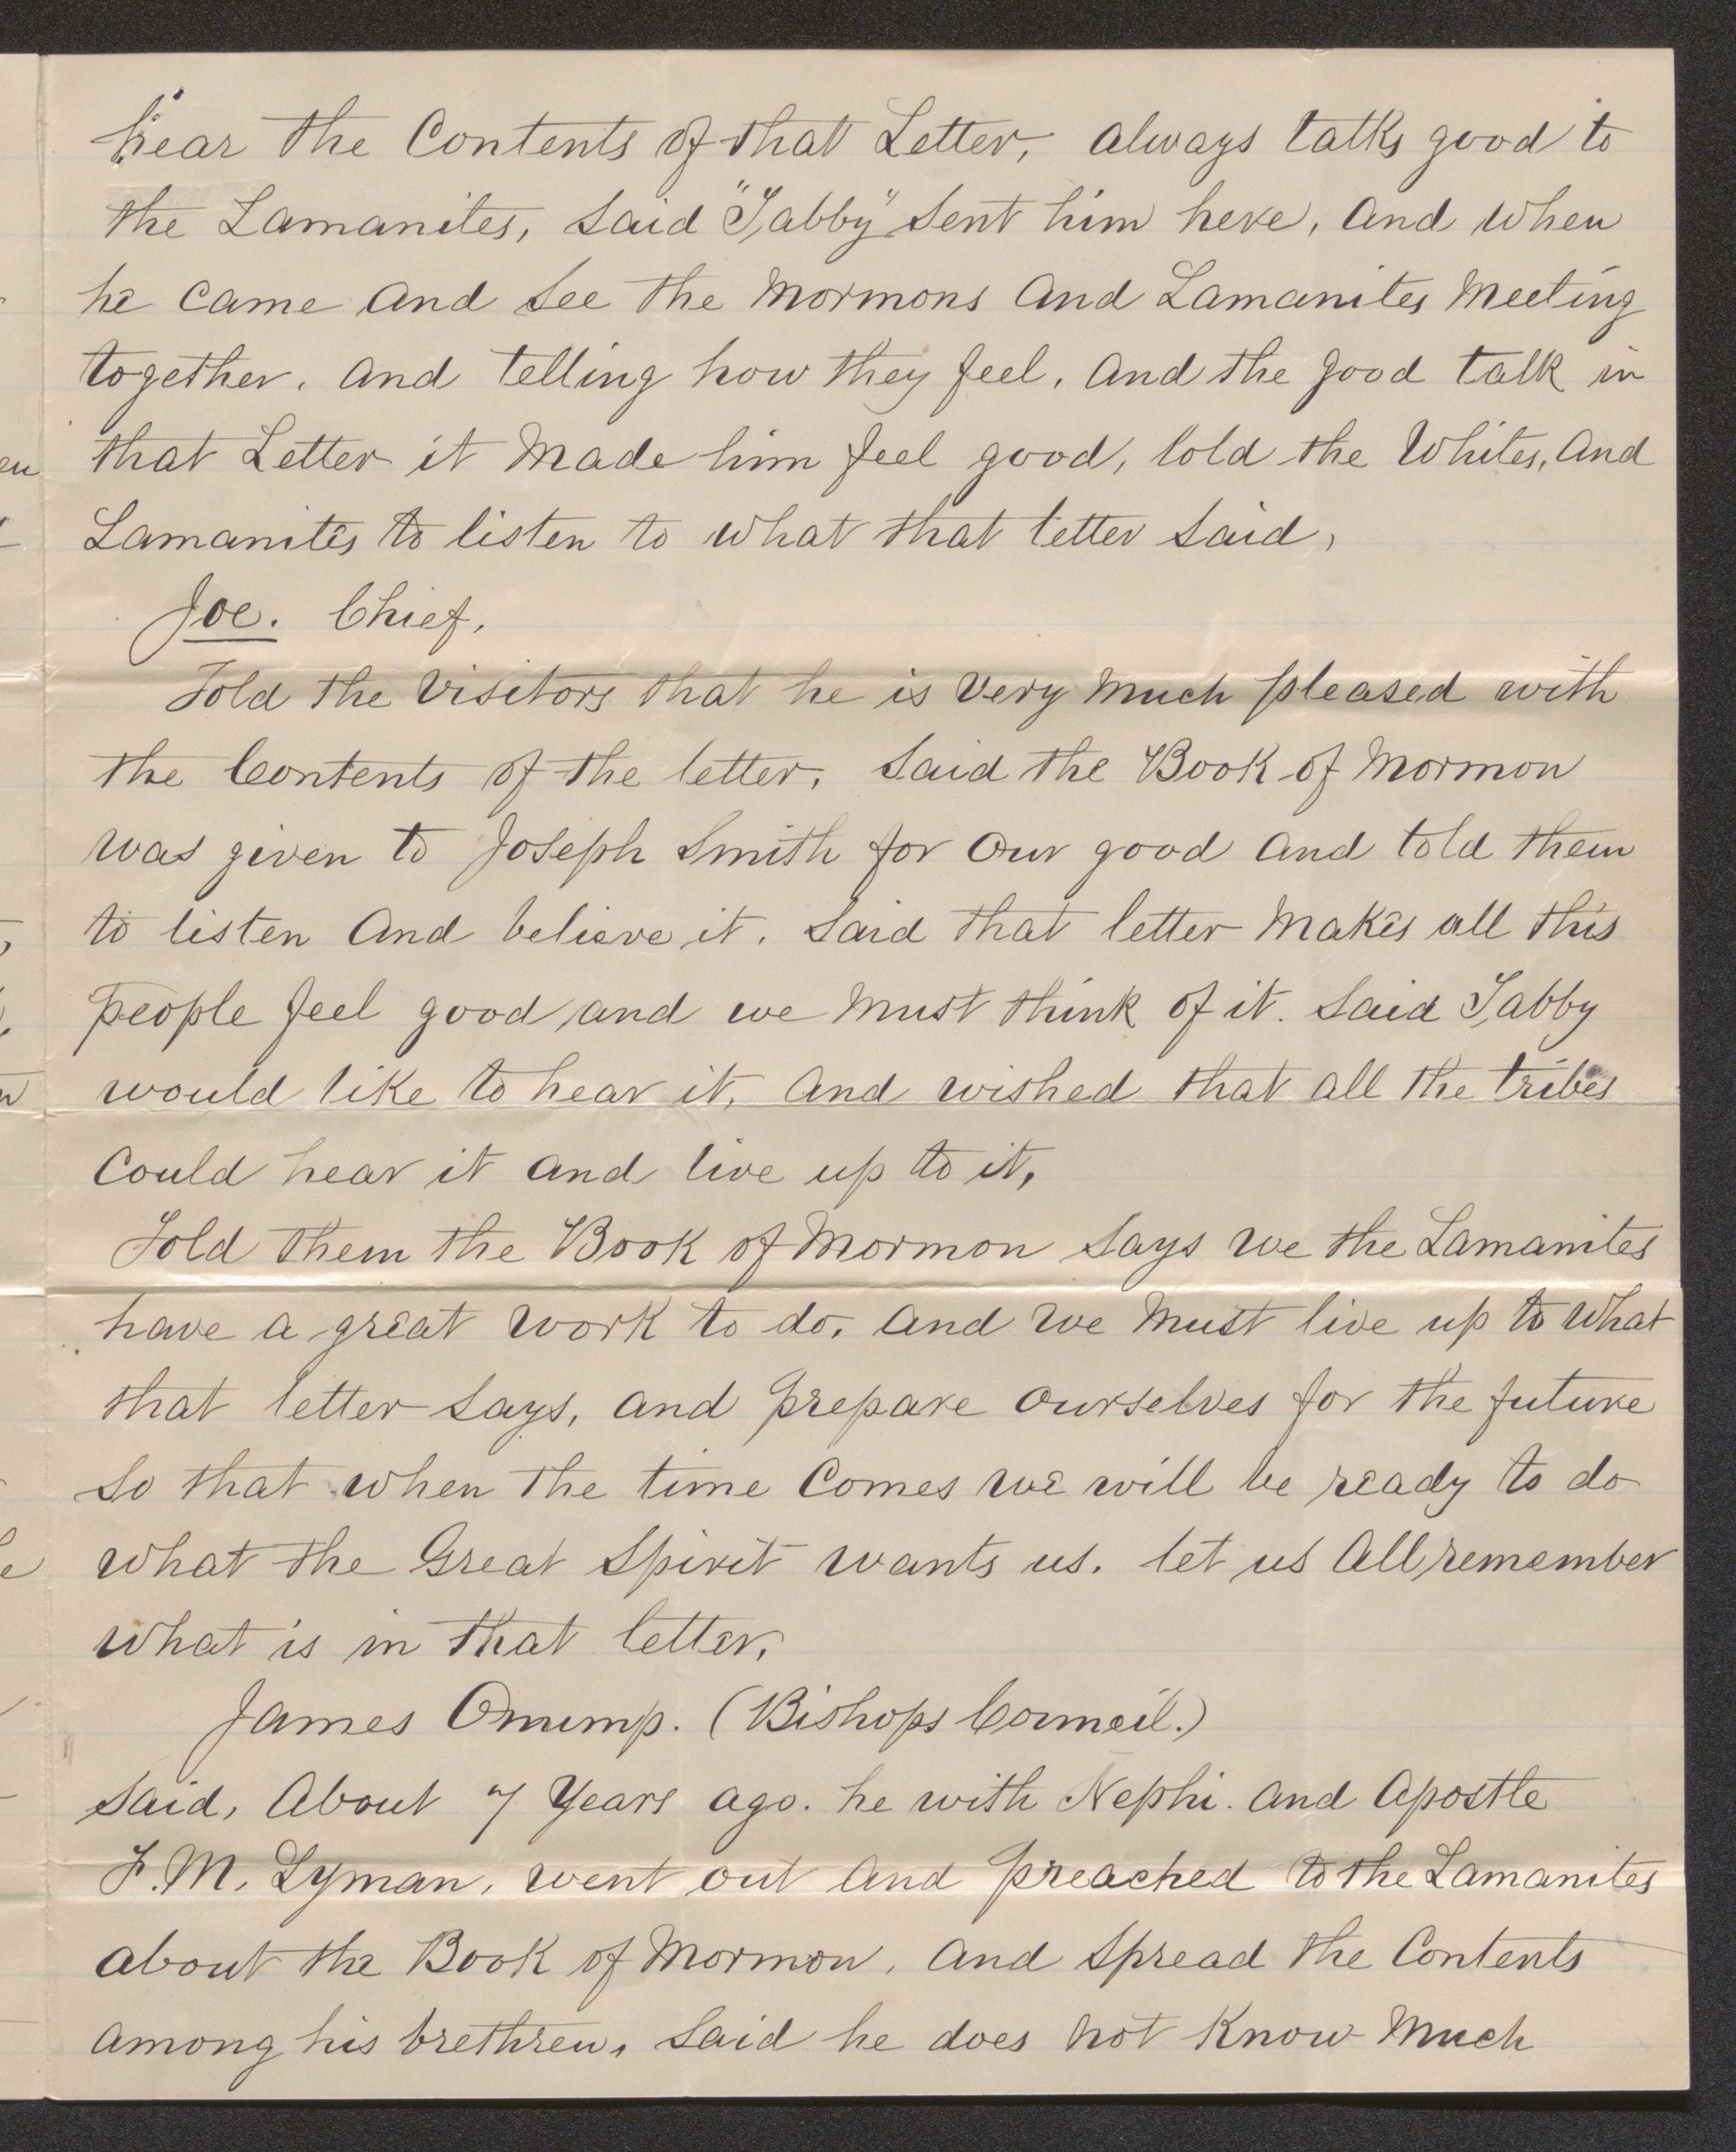 hear the Contents of that Letter, always talks good to
the Lamanites, Said "Tabby" Sent him here, And when
he Came And See the Mormons And Lamanites Meeting
together. And telling how they feel. And the good talk in
that Letter it Made him feel good, told the Whites, And
Lamanites to listen to what that letter Said,
Joe. Chief,
Told the Visitors that he is Very Much pleased with
the Contents of the letter, Said the Book of Mormon
was given to Joseph Smith for Our good And told them
to listen And believe it. Said that letter Makes all this
people feel good and we Must think of it. Said Tabby
would like to hear it, And wished that all the tribes
Could hear it and live up to it,
Told them the Book of Mormon Says we the Lamanites
have a great work to do, And we Must live up to what
that letter Says, And prepare Ourselves for the future
So that when the time Comes we will be ready to do
what the Great Spirit wants us. let us All remember
what is in that letter,
James Onump. (Bishops Council.)
Said, About 7 Years ago. he with Nephi. And Apostle
F. M. Lyman, went out And preached to the Lamanites
about the Book of Mormon, And Spread the Contents
among his brethren, Said he does Not Know Much